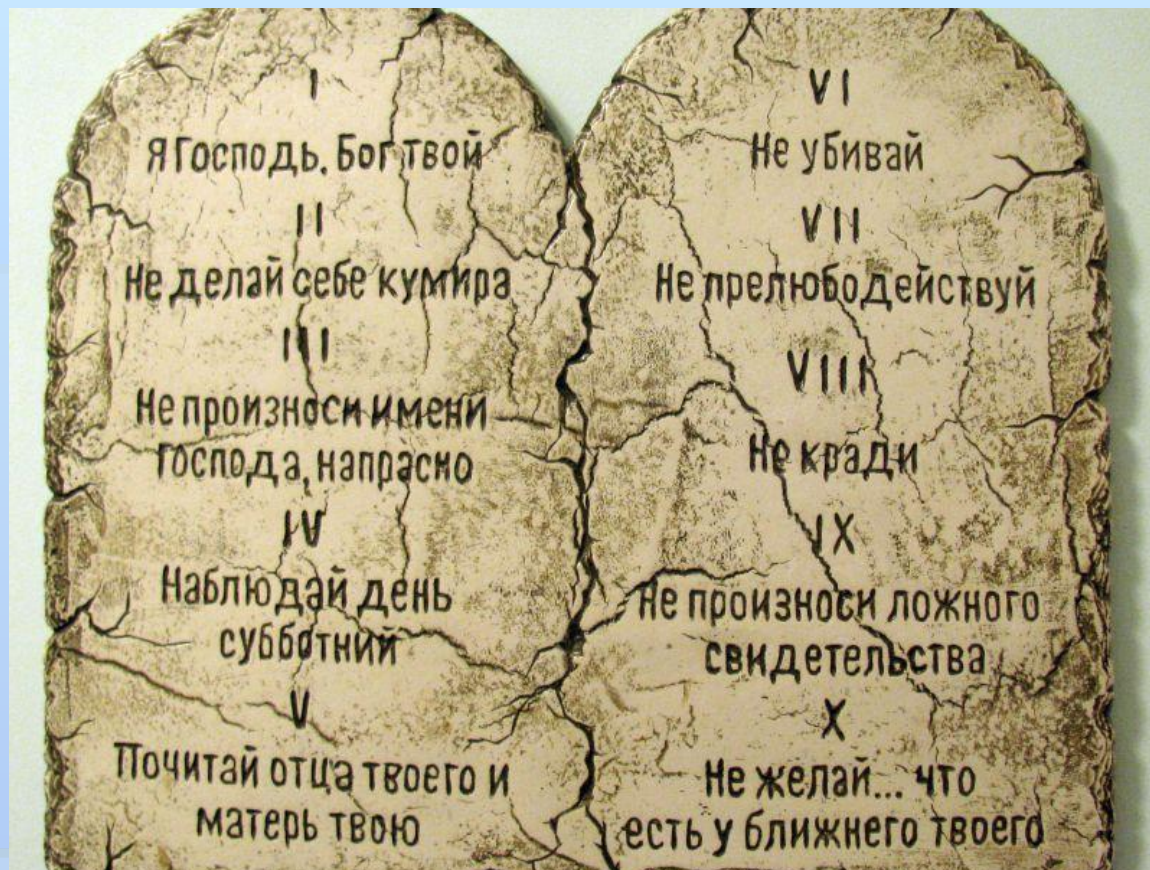 I
Я Господь. Бог твой
II
Не делай себе кумира
III
Не произноси имени
Господа, напрасно
IV
Наблюдай день
субботний
V
Почитай отца твоего и
матерь твою
VI
Не убивай
VII
Не прелюбодействуй
VIII
Не кради
IX
Не произноси ложного
свидетельства
X
Не желай... что
есть у ближнего твоего